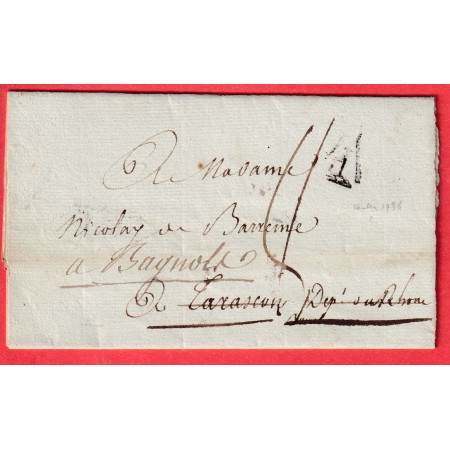 A Madame
Nicolay de Barreme
a Bagnols
A Tarascon Dep' du Rhone